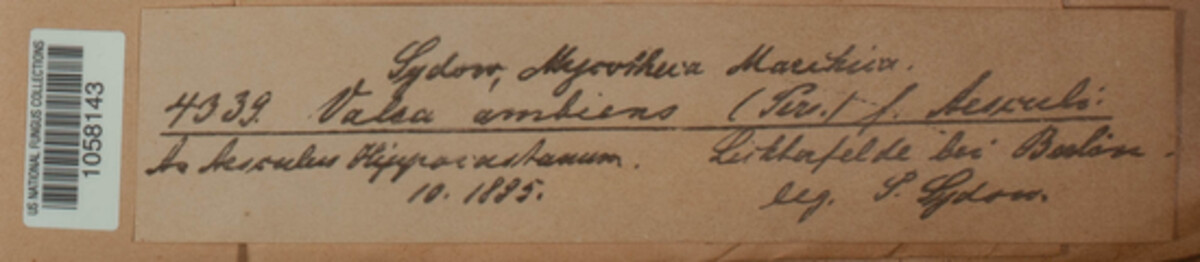 US NATIONAL FUNGUS COLLECTIONS
1058143
Sydow, Mycotheca Marchica.
4339. Valsa ambiens (Pers.) f. Aesculi.
An Aesculus Hippocastanum. Lichterfelde bei Berlin.
10. 1895. leg. P. Sydow.